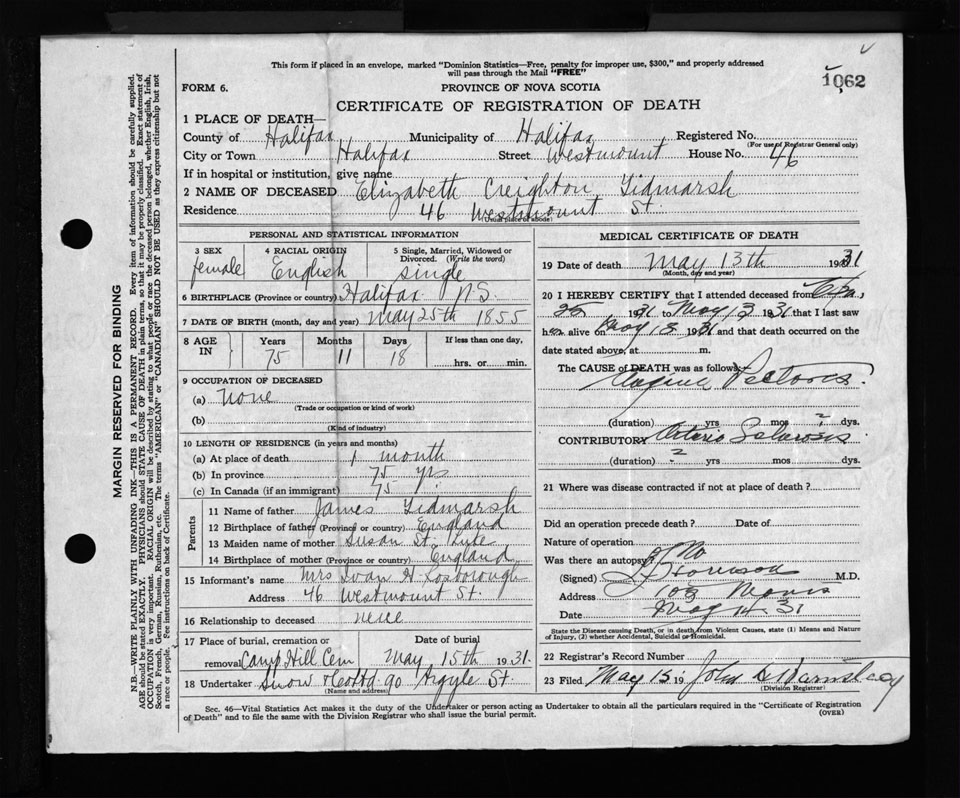 This form if placed in an envelope, marked "Dominion Statistics—Free, penalty for improper use, $300," and properly addressed
will pass through the Mail "FREE"
1062
FORM 6.
PROVINCE OF NOVA SCOTIA
CERTIFICATE OF REGISTRATION OF DEATH
1 PLACE OF DEATH—
County of Halifax Municipality of Halifax Registered No.
(For use of Registrar General only)
City or Town Halifax Street Westmount House No. 46
If in hospital or institution, give name
2 NAME OF DECEASED Elizabeth Creighton Tidmarsh
Residence 46 Westmount St.
(Usual place of abode)
PERSONAL AND STATISTICAL INFORMATION
3 SEX
female
4 RACIAL ORIGIN
English
5 Single, Married, Widowed or
Divorced. (Write the word)
single
6 BIRTHPLACE (Province or country) Halifax N.S.
7 DATE OF BIRTH (month, day and year) May 25th 1855
8 AGE IN
Years Months Days If less than one day,
75 11 18 hrs. or min.
9 OCCUPATION OF DECEASED
(a) None
(Trade or occupation or kind of work)
(b)
(Kind of industry)
10 LENGTH OF RESIDENCE (in years and months)
(a) At place of death 1 month
(b) In province 75 yrs
(c) In Canada (if an immigrant) 75
Parents
11 Name of father James Tidmarsh
12 Birthplace of father (Province or country) England
13 Maiden name of mother Susan St.
14 Birthplace of mother (Province or country) England
15 Informant's name Mrs Ivan H
Address 46 Westmount St.
16 Relationship to deceased neice
17 Place of burial, cremation or Date of burial
removal Camp Hill Cem May 15th 1931.
18 Undertaker Snow & Co Ltd 90 Argyle St
(Name and address)
MEDICAL CERTIFICATE OF DEATH
19 Date of death May 13th 1931
(Month, day and year)
20 I HEREBY CERTIFY that I attended deceased from
25 1931 to May 13 1931 that I last saw
h alive on May 13 1931 and that death occurred on
date stated above, at m.
The CAUSE OF DEATH was as follows:
Angina Pectoris.
(duration) yrs mos ? dys.
CONTRIBUTORY Arterio Sclerosis
(duration) ? yrs mos dys.
21 Where was disease contracted if not at place of death?
Did an operation precede death? Date of
Nature of operation
Was there an autopsy? No
(Signed) M.D.
Address 103 Morris
Date May 14.31
State the Disease causing Death, or in death from Violent Causes, state (1) Means and
Nature of Injury, (2) whether Accidental, Suicidal or Homicidal.
22 Registrar's Record Number
23 Filed May 15 19 John
(Division Registrar)
Sec. 46—Vital Statistics Act makes it the duty of the Undertaker or person acting as Undertaker to obtain all the particulars required in the "Certificate of Registration
of Death" and to file the same with the Division Registrar who shall issue the burial permit.
(OVER)
MARGIN RESERVED FOR BINDING
N.B.—WRITE PLAINLY WITH UNFADING INK—THIS IS A PERMANENT RECORD. Every item of information should be carefully supplied.
AGE should be stated EXACTLY. PHYSICIANS should STATE CAUSE OF DEATH in plain terms, so that it may be properly classified. Exact statement of
OCCUPATION is very important. RACIAL ORIGIN will be described by stating to what people or race the deceased person belonged, whether English, Irish,
Scotch, French, German, Russian, Ruthenian, etc. The terms "AMERICAN" or "CANADIAN" SHOULD NOT BE USED as they express citizenship but not
a race or people. See instructions on back of Certificate.